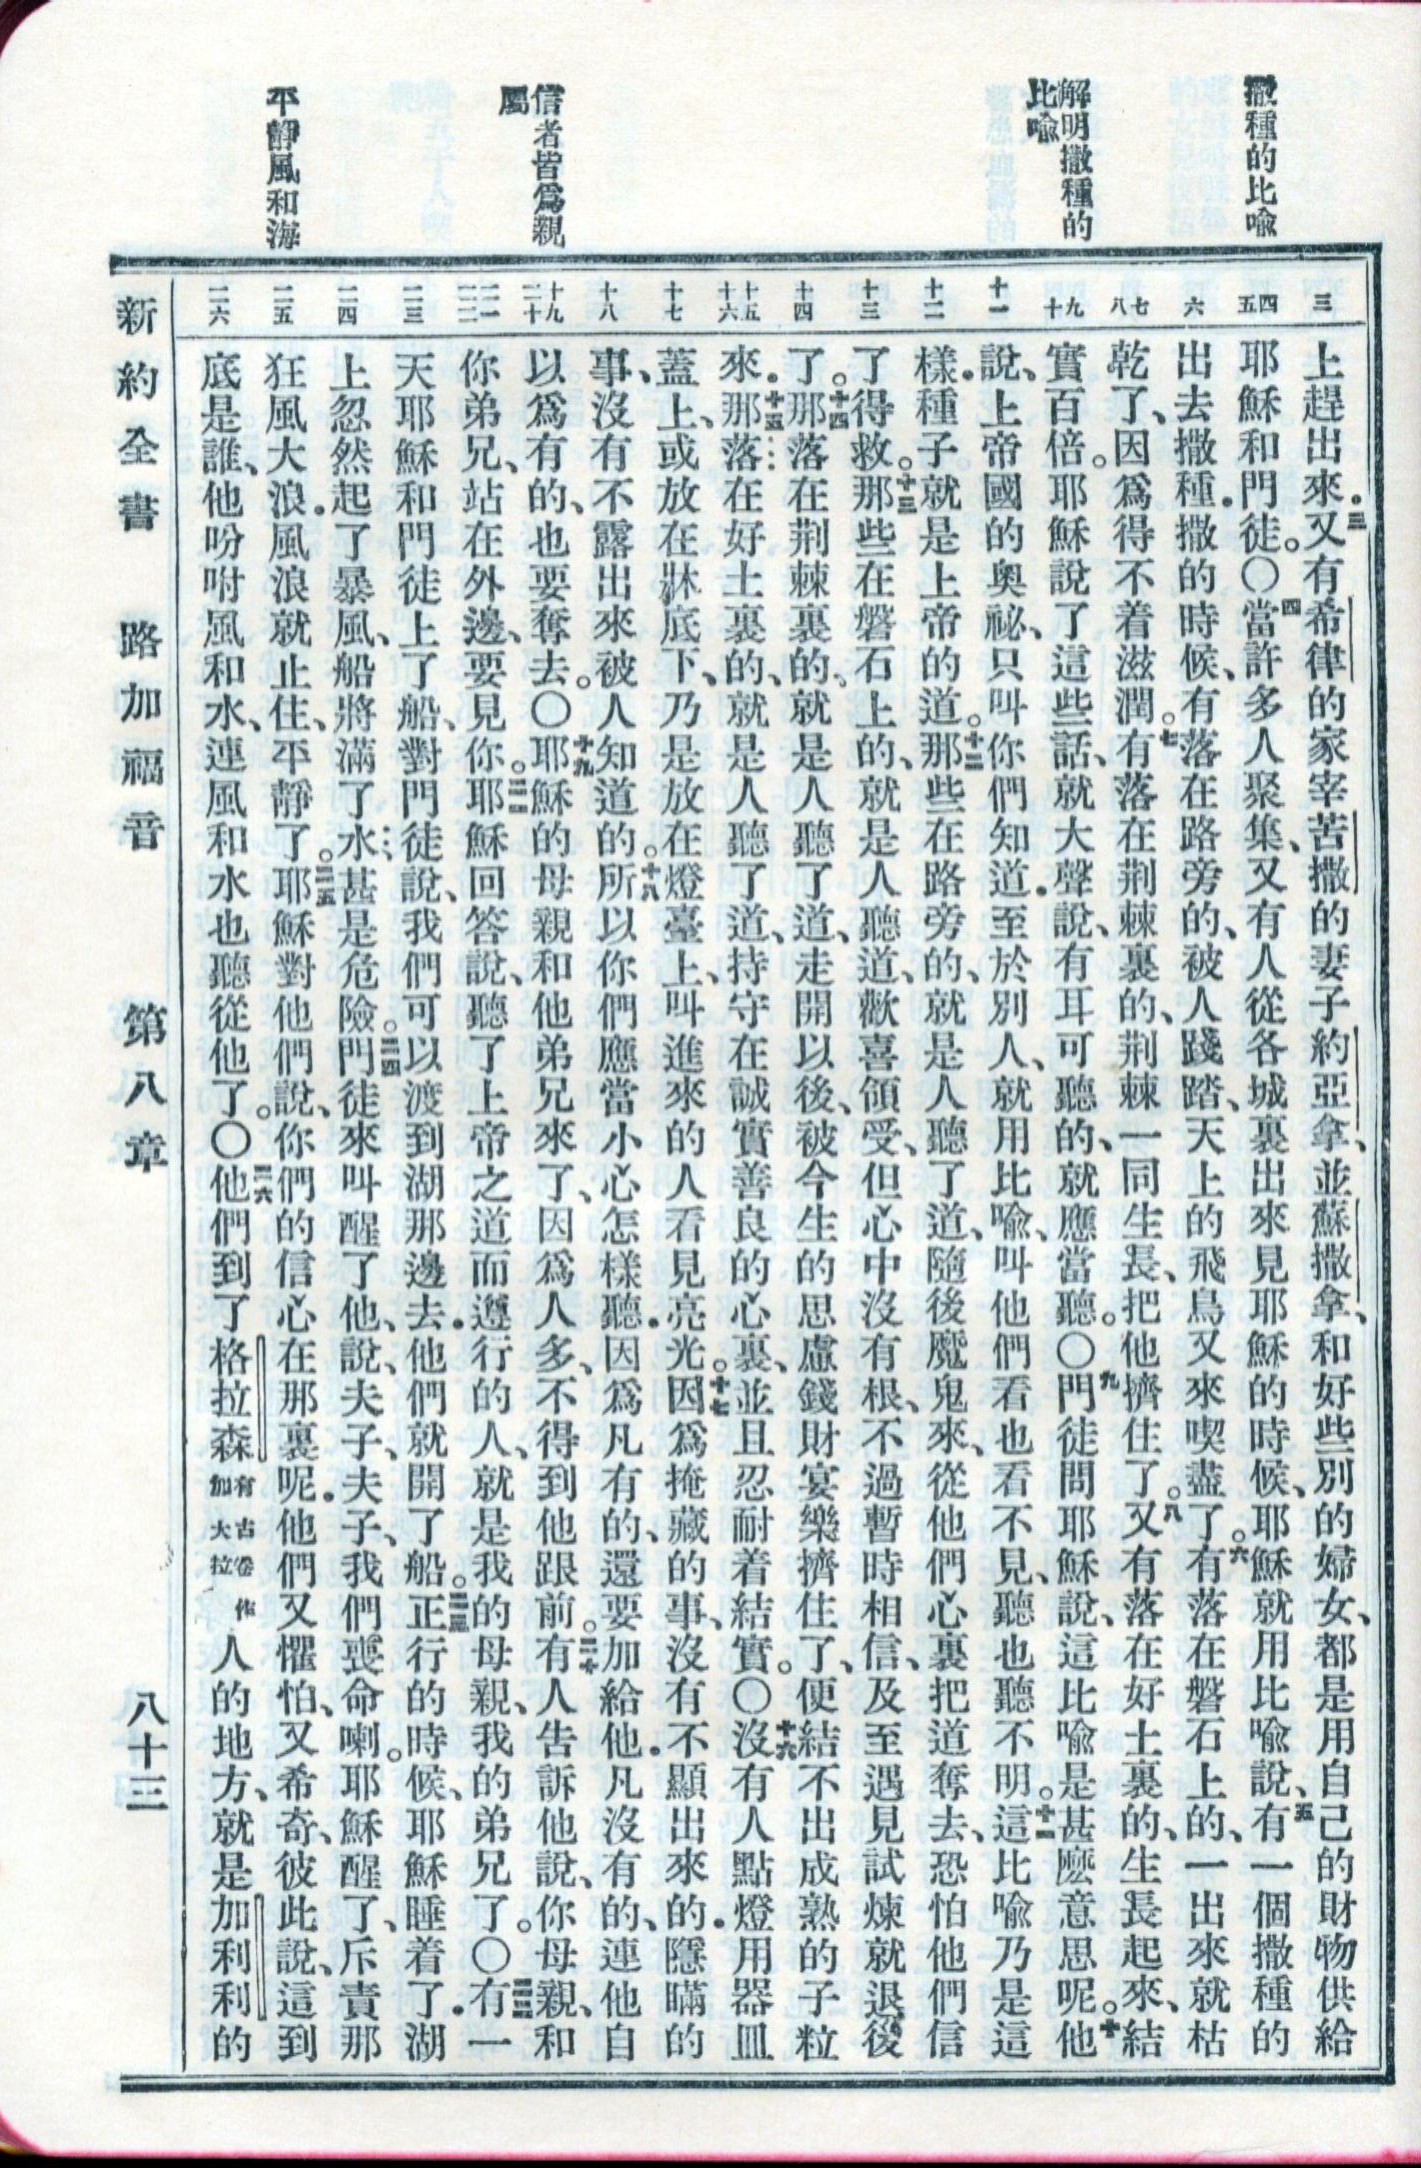 撒種的比喩
解明撒種的
比喩
信者皆爲親
屬
平靜風和海
三
四
五
六
七
八
九
十
十一
十二
十三
十四
十五
十六
十七
十八
十九
二十
二一
二二
二三
二四
二五
二六
上趕出來．三又有希律的家宰苦撒的妻子約亞拿、並蘇撒拿、和好些別的婦女、都是用自己的財物供給
耶穌和門徒。〇四當許多人聚集、又有人從各城裏出來見耶穌的時候、耶穌就用比喩說、五有一個撒種的
出去撒種．撒的時候、有落在路旁的、被人踐踏、天上的飛鳥又來喫盡了。六有落在磐石上的、一出來就枯
乾了、因爲得不着滋潤。七有落在荆棘裏的、荆棘一同生長、把他擠住了。八又有落在好土裏的、生長起來、結
實百倍。耶穌說了這些話、就大聲說、有耳可聽的、就應當聽。〇九門徒問耶穌說、這比喩是甚麽意思呢。十他
說、上帝國的奥祕、只叫你們知道．至於別人、就用比喩、叫他們看也看不見、聽也聽不明。十一這比喩乃是這
樣．種子。就是上帝的道。十二那些在路旁的、就是人聽了道、隨後魔鬼來、從他們心裏把道奪去、恐怕他們信
了得救。十三那些在磐石上的、就是人聽道、歡喜領受、但心中沒有根、不過暫時相信、及至遇見試煉就退後
了。十四那落在荆棘裏的、就是人聽了道、走開以後、被今生的思慮錢財宴樂擠住了、便結不出成熟的子粒
來．十五那落在好土裏的、就是人聽了道、持守在誠實善良的心裏、並且忍耐着結實。〇十六沒有人點燈用器皿
蓋上、或放在牀底下、乃是放在燈臺上、叫進來的人看見亮光。十七因爲掩藏的事、沒有不顯出來的．隱瞞的
事、沒有不露出來被人知道的。十八所以你們應當小心怎樣聽．因爲凡有的、還要加給他．凡沒有的、連他自
以爲有的、也要奪去。〇十九耶穌的母親和他弟兄來了、因爲人多、不得到他跟前。二十有人告訴他說、你母親、和
你弟兄、站在外邊、要見你。二一耶穌回答說、聽了上帝之道而遵行的人、就是我的母親、我的弟兄了。〇二二有一
天耶穌和門徒上了船、對門徒說、我們可以渡到湖那邊去．他們就開了船。二三正行的時候、耶穌睡着了．湖
上忽然起了暴風、船將滿了水、甚是危險。二四門徒來叫醒了他、說、夫子、夫子、我們喪命喇。耶穌醒了、斥責那
狂風大浪．風浪就止住、平靜了。二五耶穌對他們說、你們的信心在那裏呢．他們又懼怕、又希奇、彼此說、這到
底是誰、他吩咐風和水、連風和水也聽從他了。〇二六他們到了格拉森有古卷作加大拉人的地方、就是加利利的
新約全書　路加福音　第八章　八十三